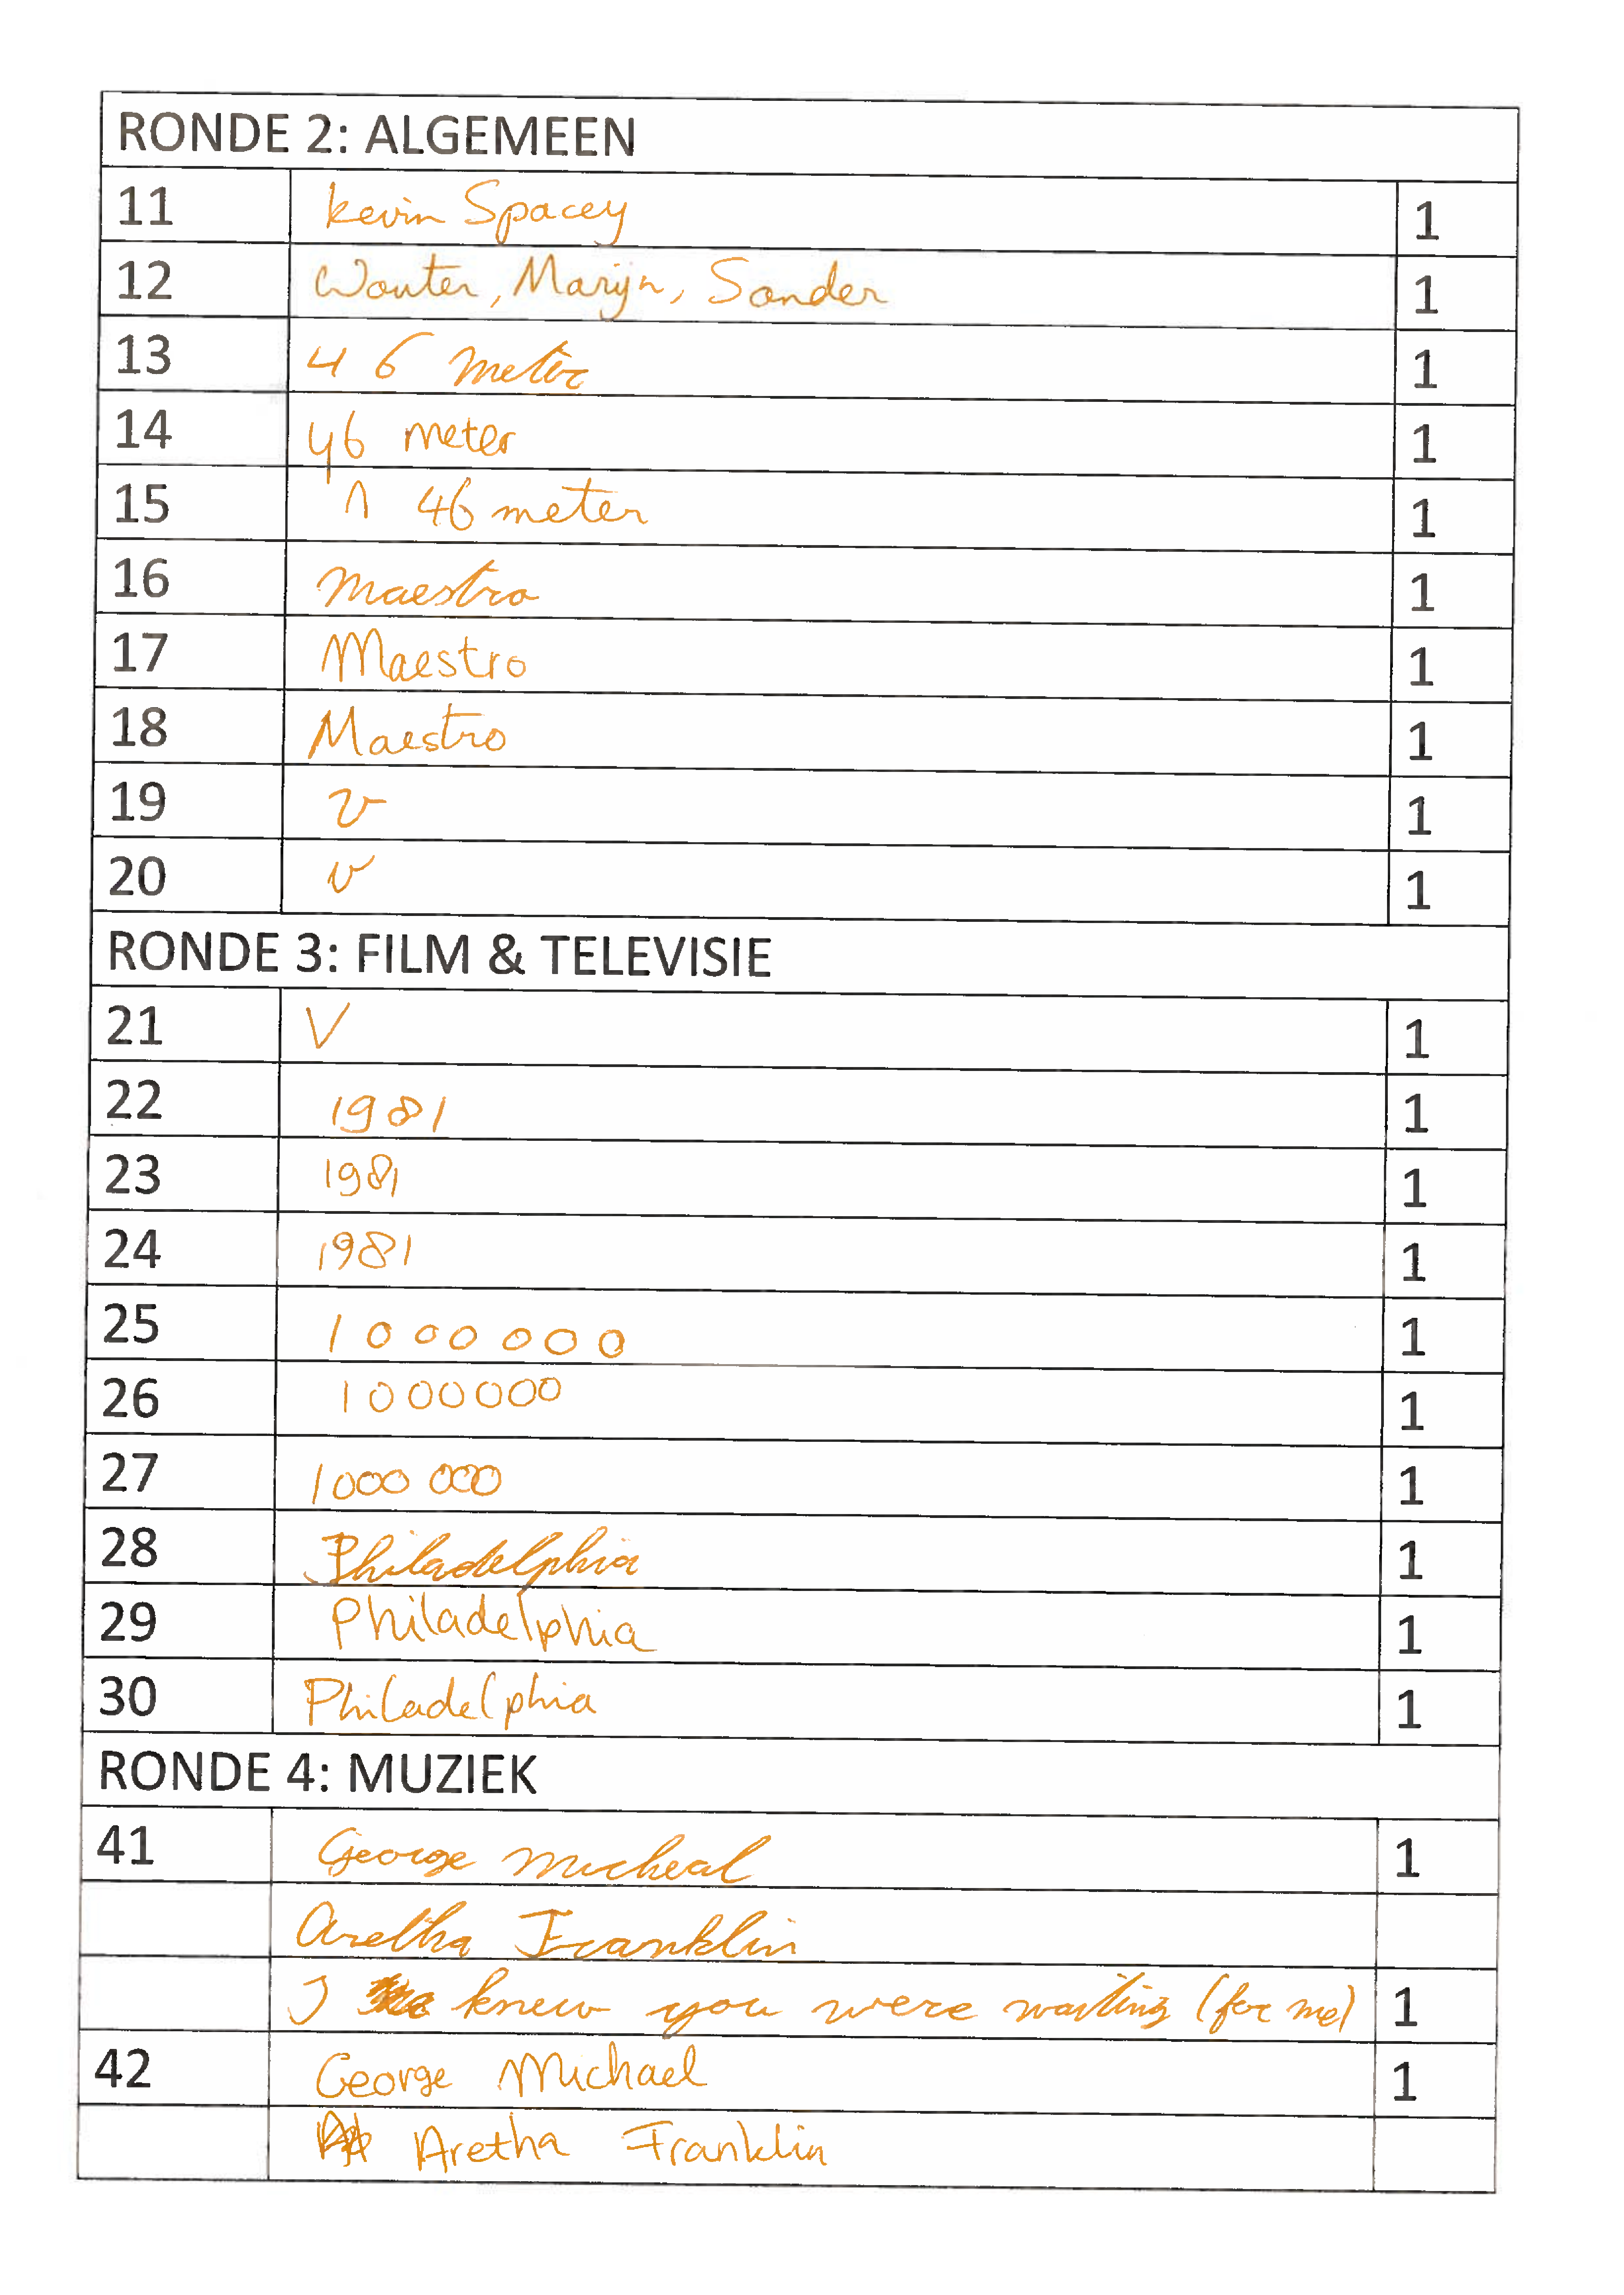 RONDE 2: ALGEMEEN
11 kevin Spacey 1
12 Wouter, Marijn, Sander 1
13 46 meter 1
14 46 meter 1
15 1 46 meter 1
16 maestro 1
17 Maestro 1
18 Maestro 1
19 v 1
20 v 1
RONDE 3: FILM & TELEVISIE
21 V 1
22 1981 1
23 1981 1
24 1981 1
25 1000000 1
26 1000000 1
27 1000 000 1
28 Philadelphia 1
29 Philadelphia 1
30 Philadelphia 1
RONDE 4: MUZIEK
41 George micheal 1
Aretha Franklin
I knew you were waiting (for me) 1
42 George Michael 1
Aretha Franklin